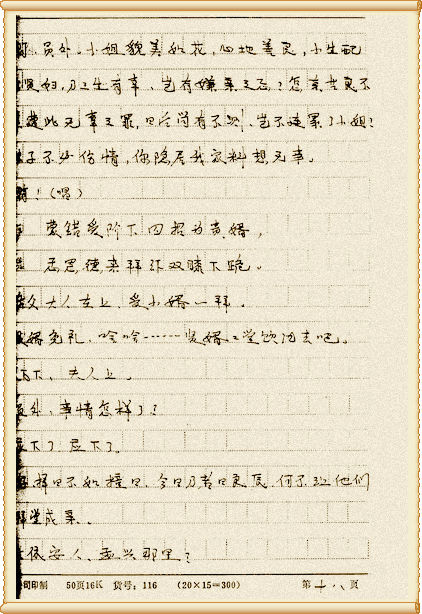 员外,小姐貌美如花,心地善良,小生配
贤妇,乃三生有幸,岂有嫌弃之意?怎奈生员不
此无辜之罪,日后尚有不测,岂不连累了小姐?
子不必伤情,你隐居我家料想无事。
(唱)
蒙错爱阶下囚招为贵婿,
孟思德来拜张双膝下跪。
父大人在上,受小婿一拜.
婿免礼,哈哈……贤婿上堂饮酒去吧。
下,夫人上。
外,事情怎样了?
下了,应下了。
择日不如撞日,今日乃若日良辰,何不让他们
堂成事。
依安人,孟兴那里?
司印制 50页16K 货号:116 (20×15=300) 第十八页